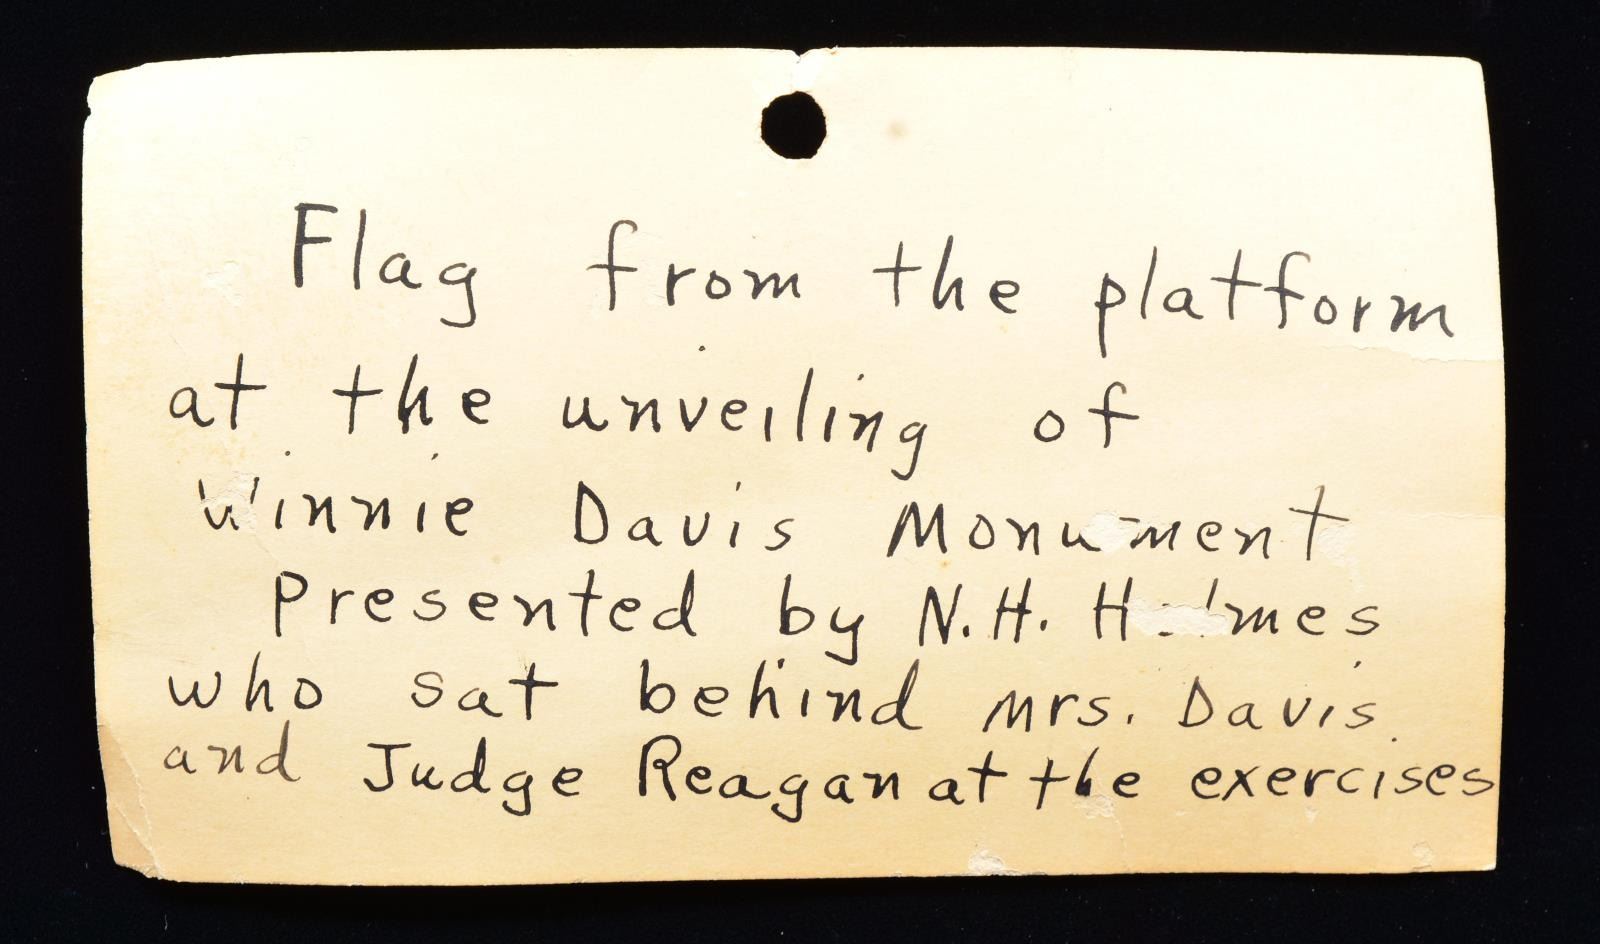 Flag from the platform
at the unveiling of
Winnie Davis Monument
Presented by N.H. Holmes
who sat behind Mrs. Davis
and Judge Reagan at the exercises